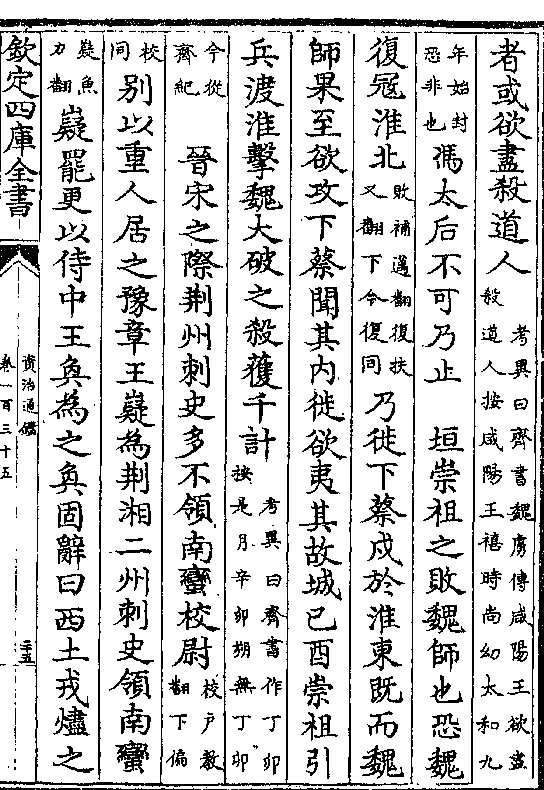 者或欲盡殺道人考異曰齊書魏虜傳咸陽王欲盡殺道人按咸陽王禧時尚幼太和九
年始封恐非也馮太后不可乃止　垣崇祖之敗魏師也恐魏
復冦淮北敗補邁翻復扶又翻下令復同乃徙下蔡戍於淮東既而魏
師果至欲攻下蔡聞其内徙欲夷其故城己酉崇祖引
兵渡淮擊魏大破之殺獲千計考異曰齊書作丁卯按是月辛卯朔無丁卯
今從齊紀　晉宋之際荆州刺史多不領南蠻校尉校户教翻下偏
校同別以重人居之豫章王嶷為荆湘二州刺史領南蠻
嶷魚力翻嶷罷更以侍中王奐為之奐固辭曰西土戎燼之
欽定四庫全書
資治通鑑
卷一百三十五
二十五